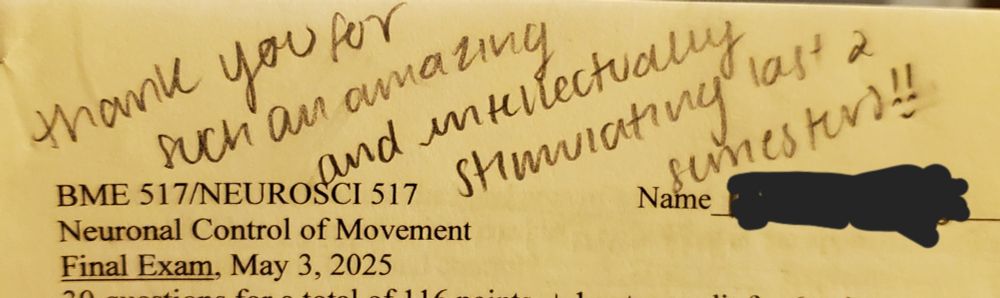 thank you for
such an amazing
and intellectually
stimulating last 2
semesters!!
BME 517/NEUROSCI 517
Name
Neuronal Control of Movement
Final Exam, May 3, 2025
questions for a total of 116 points